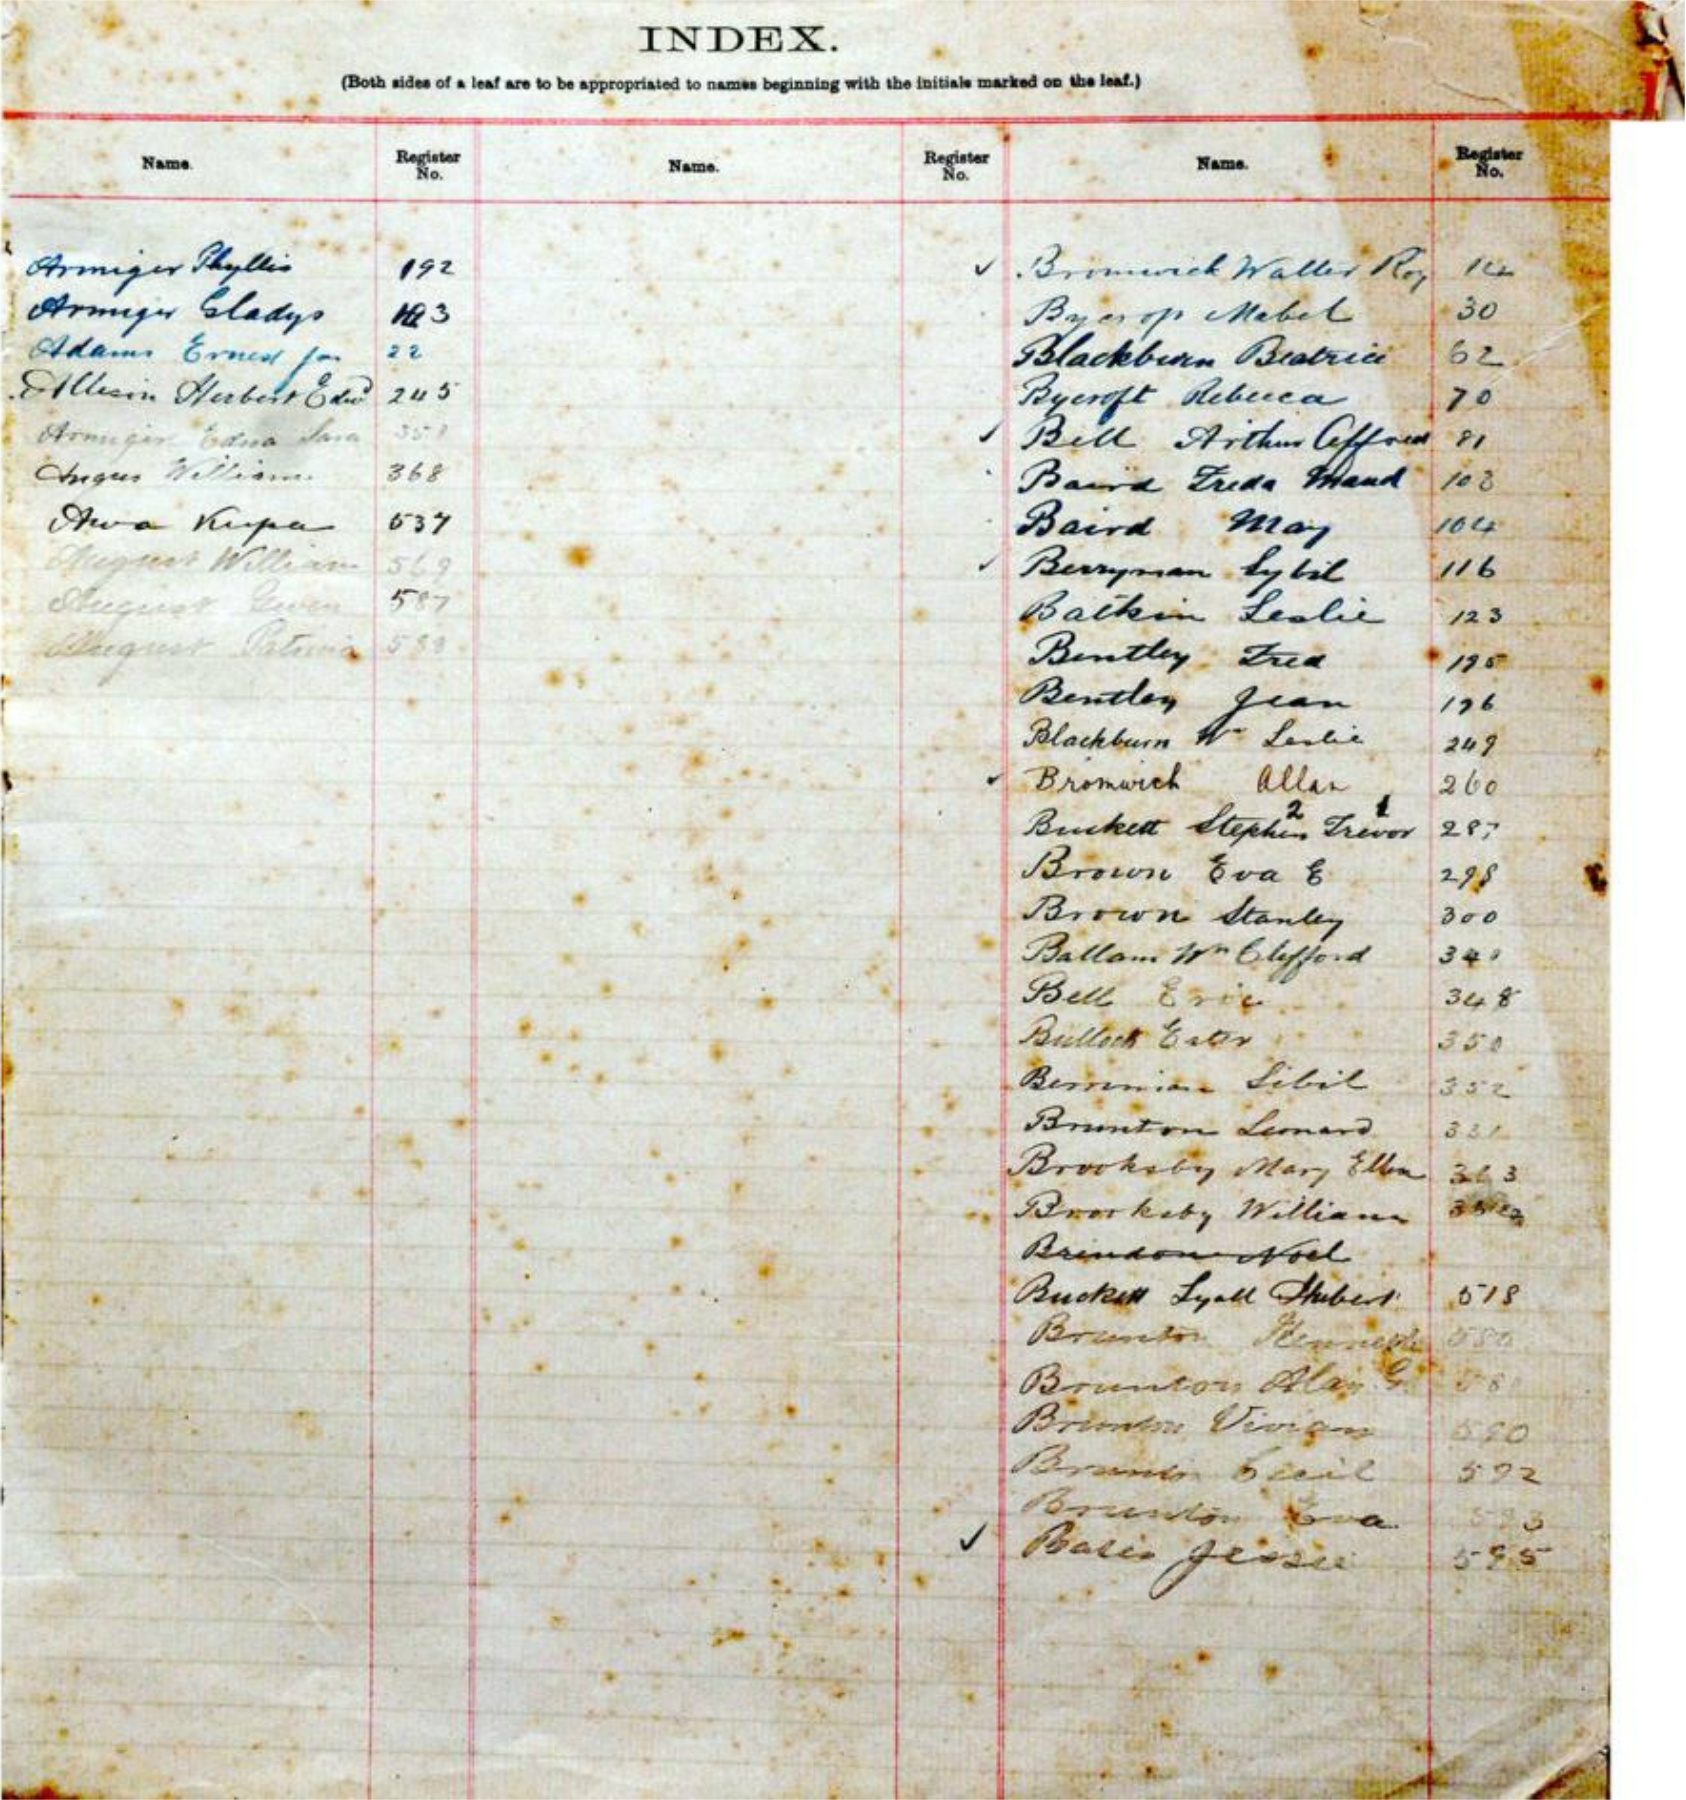 INDEX.
(Both sides of a leaf are to be appropriated to names beginning with the initials marked on the leaf.)
Name. Register No. Name. Register No. Name. Register No.
Armiger Phyllis 192
Armiger Gladys 193
Adams Ernest 22
Allison Herbert Edwd 245
Armiger Edna
Angus William 368
Awa Kupa 537
August William 569
August Gwen 587
August Patricia 588
✓ Bromwich Walter Roy
Bycrop Mabel 30
Blackburn Beatrice 62
Bycroft Rebecca 70
✓ Bell Arthur 81
Baird Freda Maud 103
Baird May 104
✓ Berryman Sybil 116
Batkin Leslie 123
Bentley Fred 195
Bentley Jean 196
Blackburn Wm Leslie 249
✓ Bromwich Allan 260
Buckett Stephen 2 Trevor 1 287
Brown Eva E 298
Brown Stanley 300
Ballam Wm Clifford
Bell Eric 348
Bullock 350
Sibil 352
Brunton Leonard
Brooksby Mary Ellen 363
Brooksby William
Brendon Noel
Buckett Lyall Hubert 518
Brunton Kenneth
Brunton Alan G.
Brunton Vivian 590
Brunton Cecil 592
Brunton Eva 593
✓ Bates Jessie 595